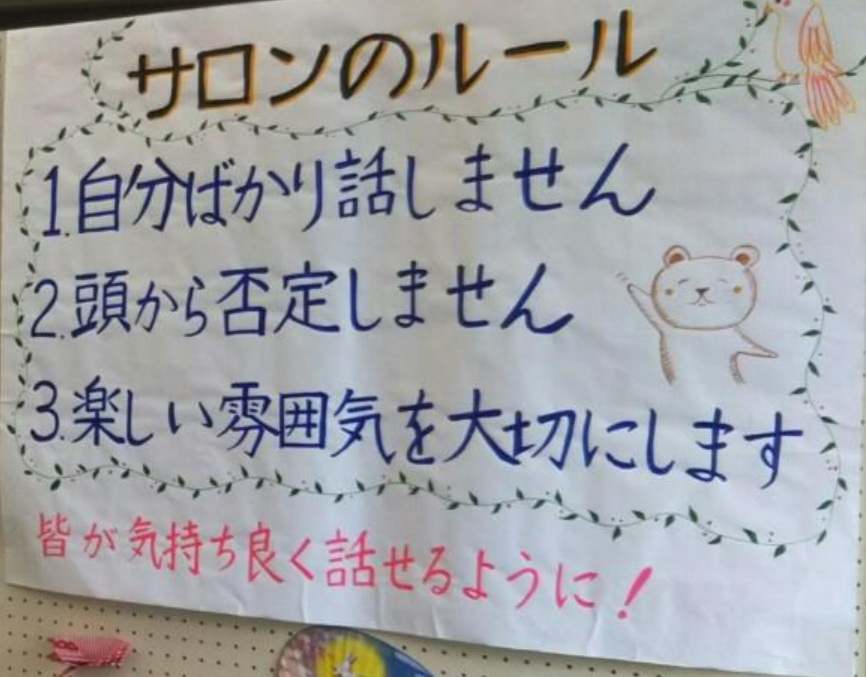 サロンのルール
1.自分ばかり話しません
2.頭から否定しません
3.楽しい雰囲気を大切にします
皆が気持ち良く話せるように!